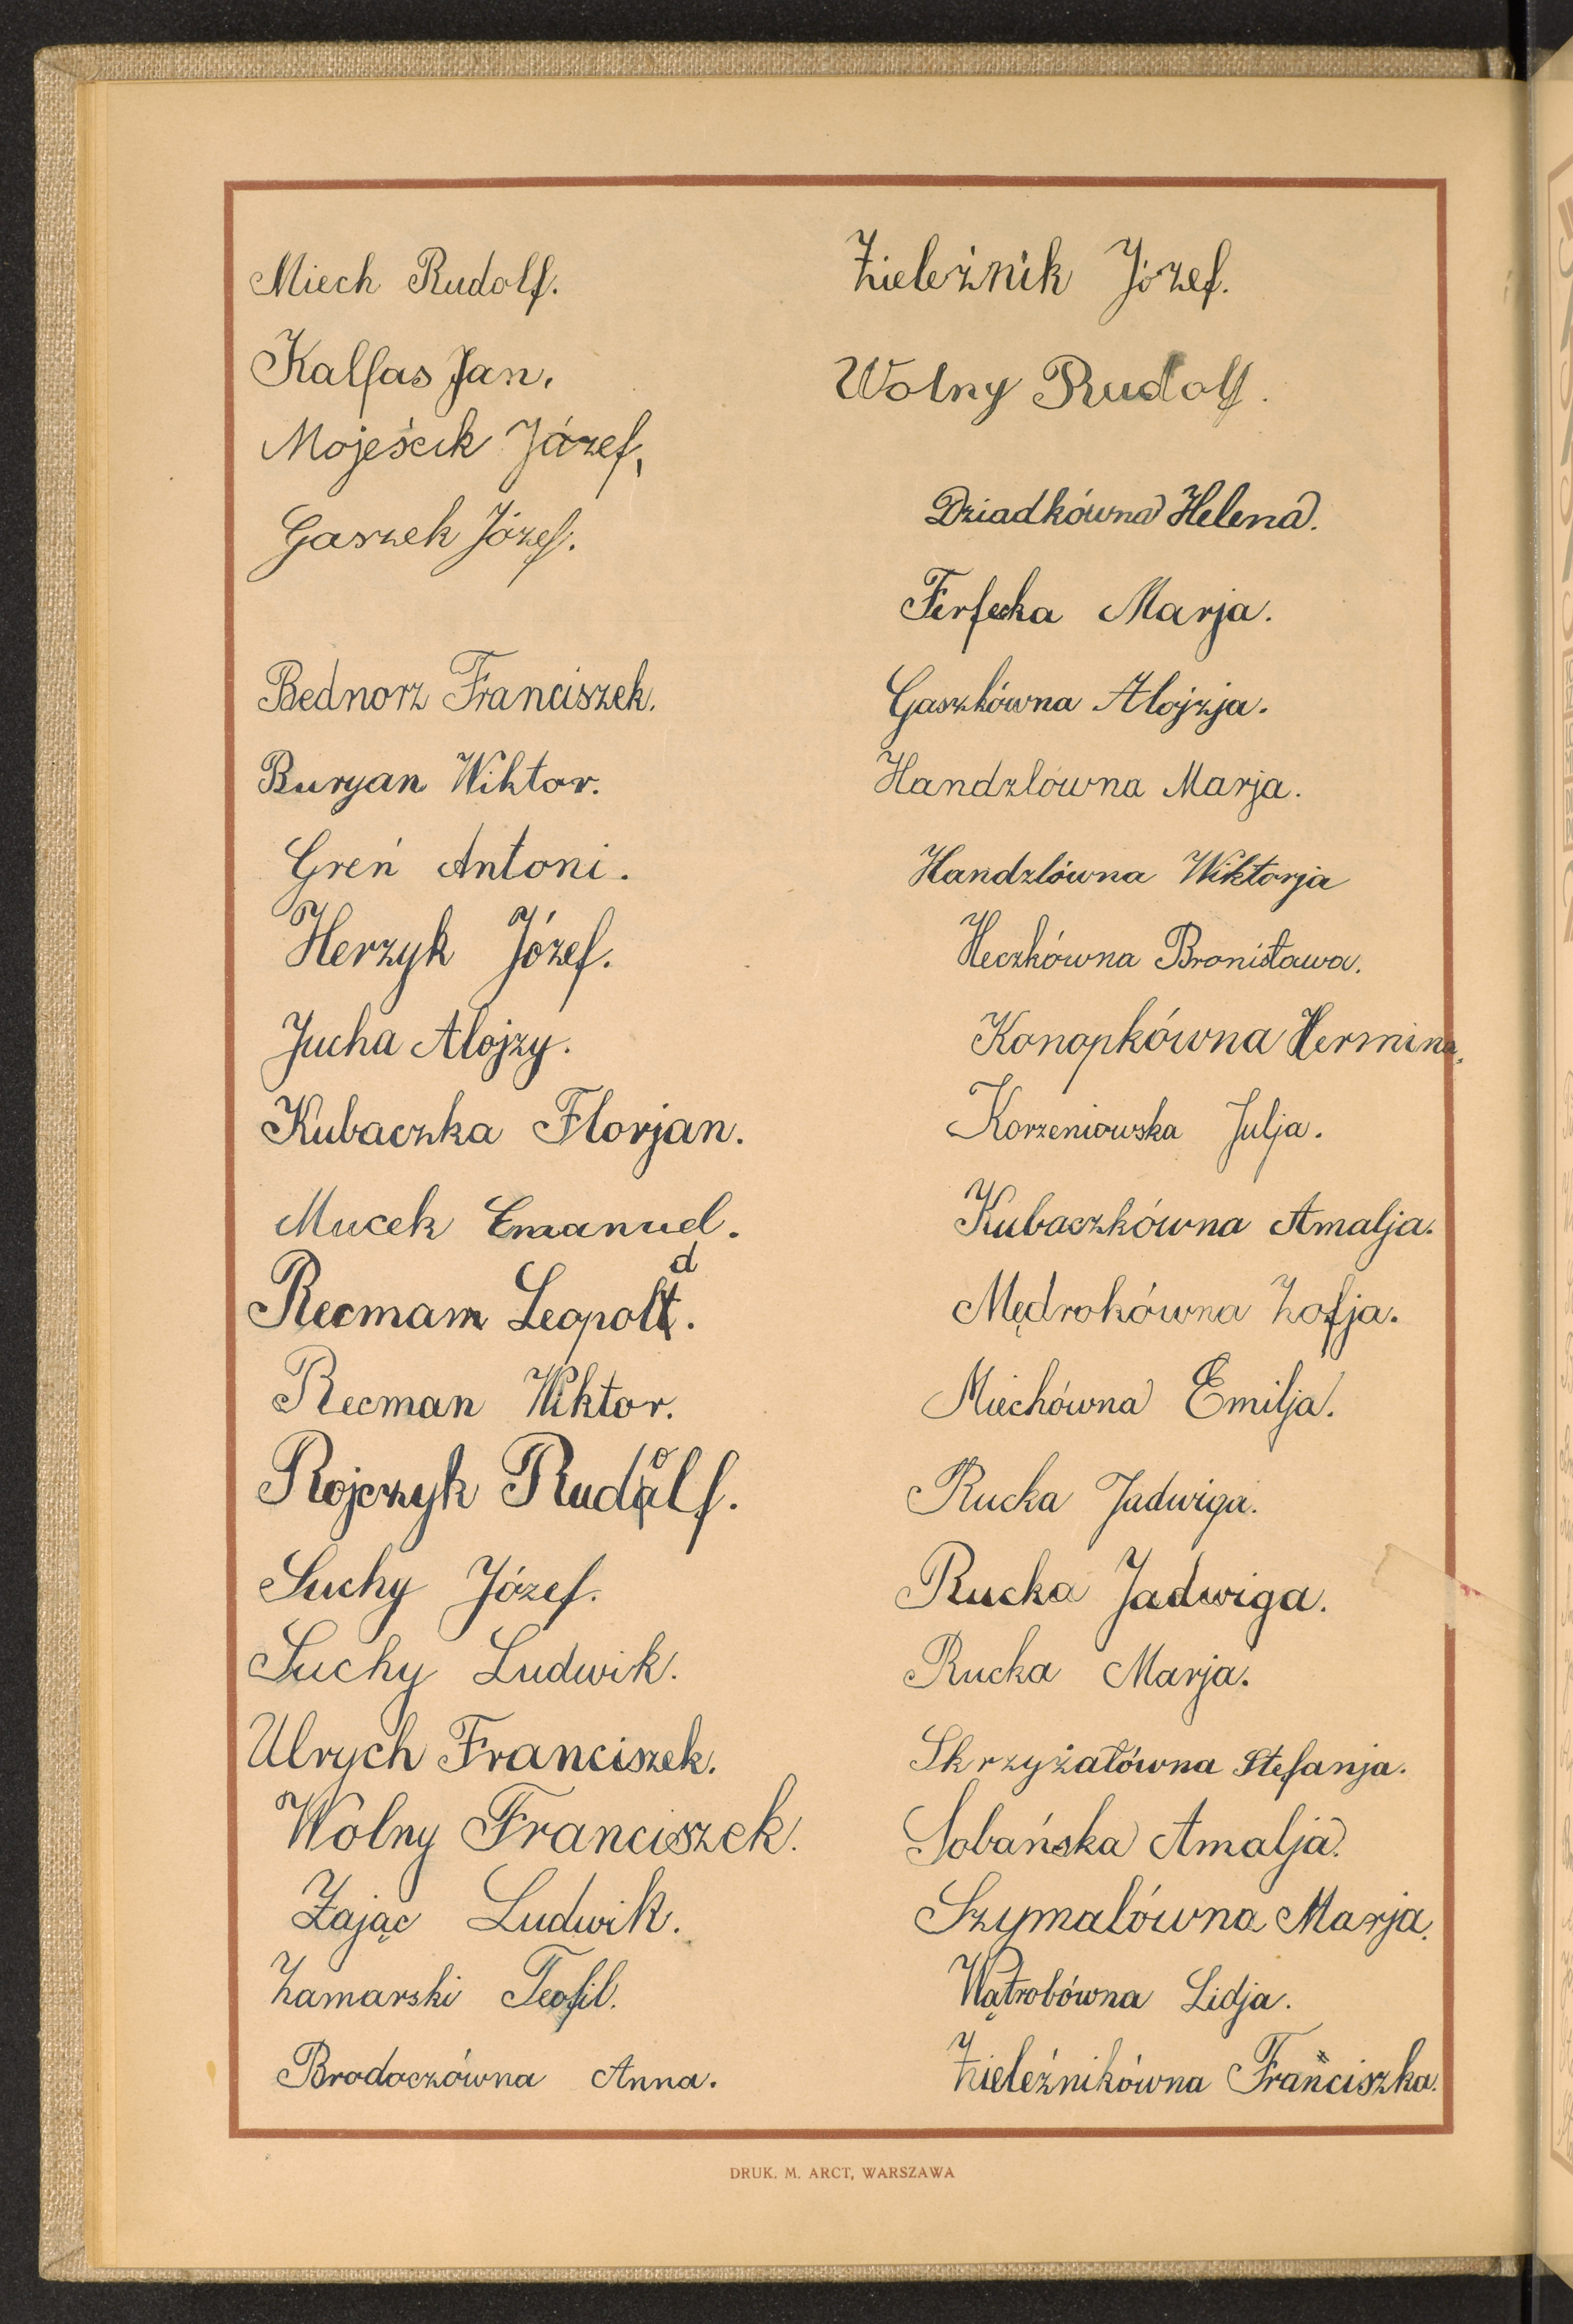 Miech Rudolf.
Kalfas Jan.
Mojeścik Józef,
Gaszek Józef.
Bednorz Franciszek.
Buryan Wiktor.
Greń Antoni.
Herzyk Józef.
Jucha Alojzy.
Kubaczka Florjan.
Mucek Emanuel.
Recmam Leopold.
Recman Wiktor.
Rojczyk Rudolf.
Suchy Józef.
Suchy Ludwik.
Ulrych Franciszek.
Wolny Franciszek.
Zając Ludwik.
Zamarski Teofil.
Brodaczówna Anna.
Zieleźnik Józef.
Wolny Rudolf.
Dziadkówna Helena.
Ferfecka Marja.
Gaszkówna Alojzja.
Handzlówna Marja.
Handzlówna Wiktorja
Heczkówna Bronisława.
Konopkówna Hermina.
Korzeniowska Julja.
Kubaczkówna Amalja.
Mędrokówna Zofja.
Miechówna Emilja.
Rucka Jadwiga.
Rucka Jadwiga.
Rucka Marja.
Skrzyżałówna Stefanja.
Sobańska Amalja.
Szymalówna Marja.
Wątrobówna Lidja.
Zieleźnikówna Franciszka.
DRUK. M. ARCT, WARSZAWA